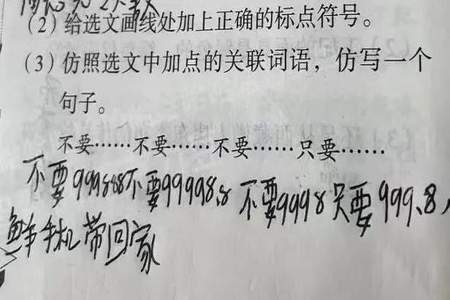 (2) 给选文画线处加上正确的标点符号。
(3) 仿照选文中加点的关联词语，仿写一个
句子。
不要……不要……不要……只要……
不要99988不要99998.8 不要9998只要999.8，
鲜手机带回家